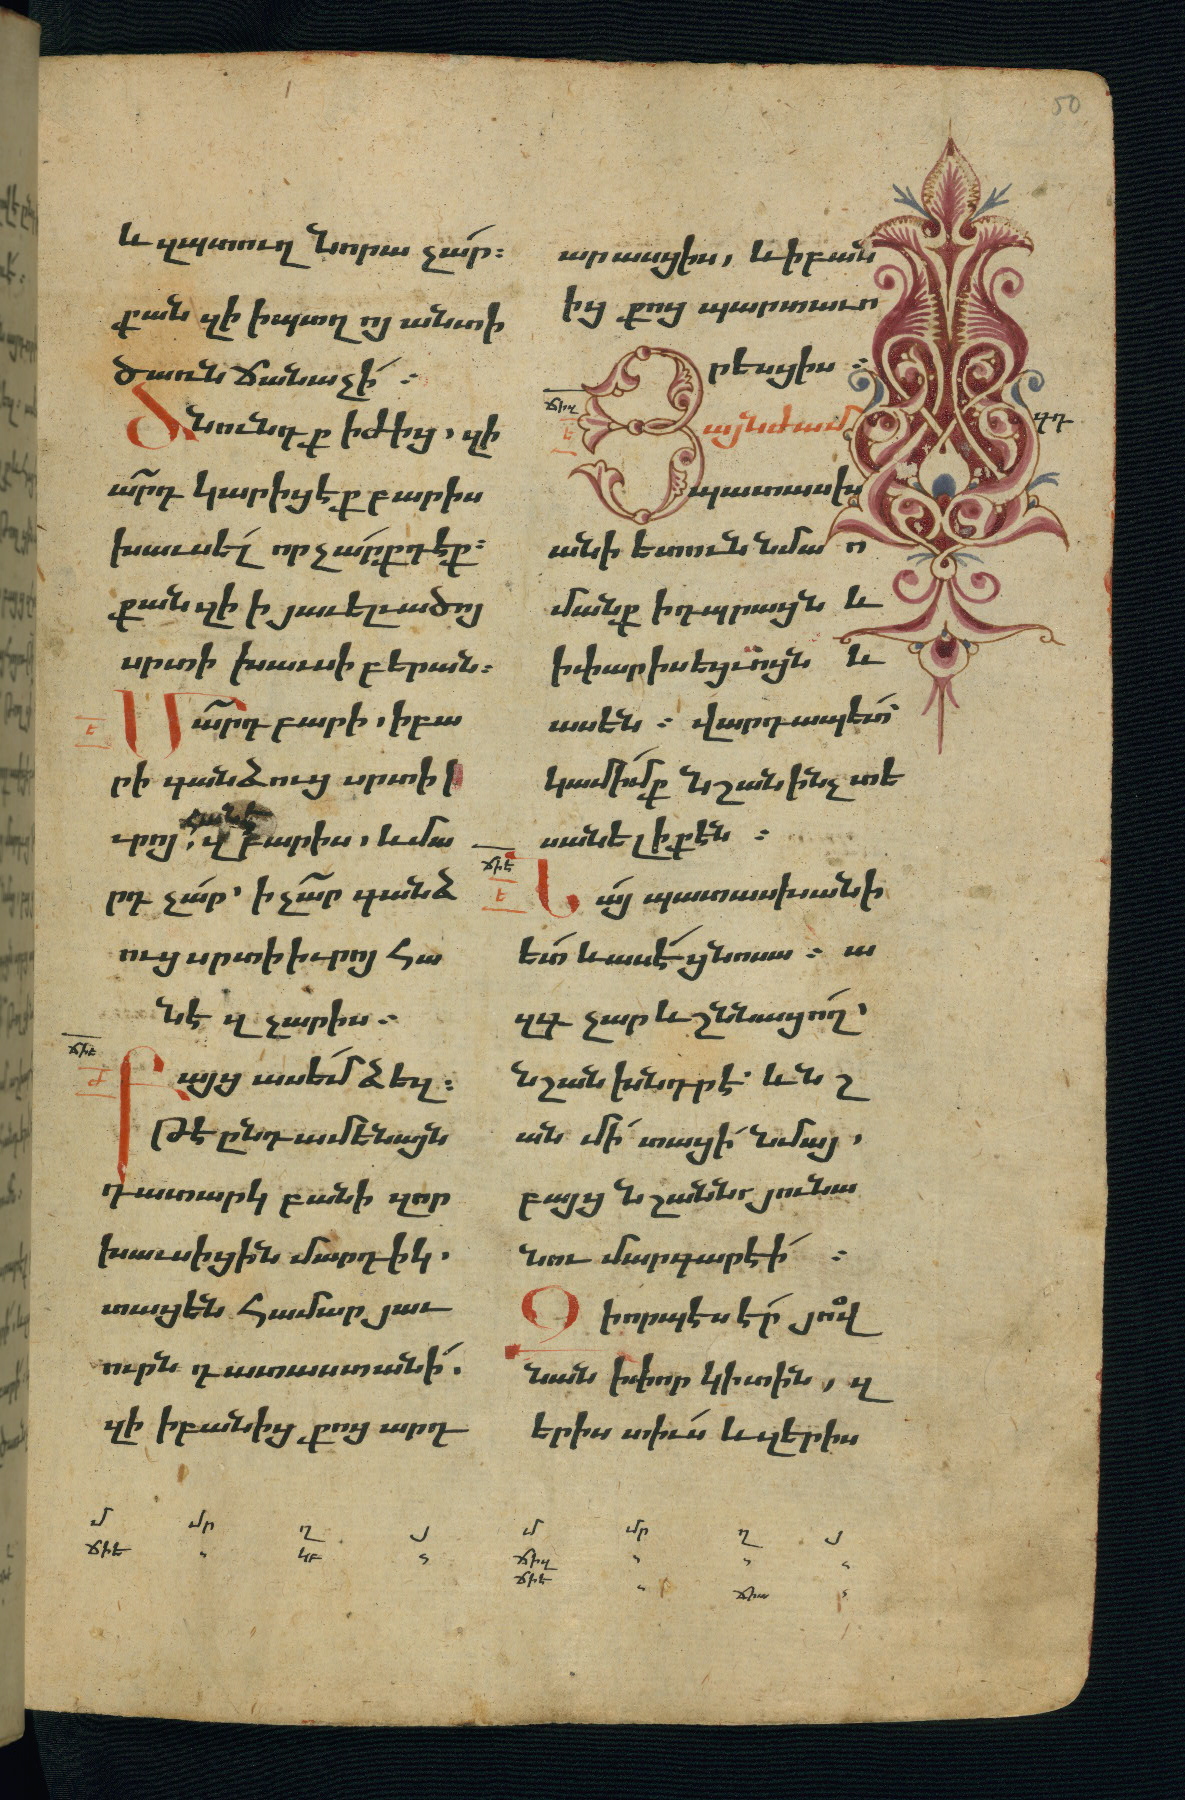 50
և զպտուղ նորա չար։
քան զի ի պտղ ոյ անտի
ծառն ճանաչի ։
Ծնունդք իժից, զի
արդ կարիցէք բարիս
խաւսել որ չարքդ էք։
քան զի ի յաւելւածոյ
սրտի խաւսի բերան։
Մարդ բարի, ի բա
րի գանձուց սրտի ի
ւրոյ, հանէ զ բարիս, և մա
րդ չար՝ ի չար գանձ
ուց սրտի իւրոյ հա
նէ զ չարիս։
ճիե
Բայց ասեմ ձեզ։
Թէ ընդ ամենայն
դատարկ բանի զոր
խաւսիցին մարդիկ,
տացեն համար յաւ
ուրն դատաստանի.
զի ի բանից քոց արդ
արասցիս, և ի բան
ից քոց պարտաւո
րեսցիս ։
ճիզ
Յայնժամ
պատասխ
անի ետուն նմա ո
մանք ի դպրացն և
ի փարիսեցւոցն և
ասեն ։ վարդապետ՝
կամիմք նշան ինչ տե
սանել ի քէն ։
ճիէ
Նայ պատասխանի
ետ և ասէ ցնոսա ։ ա
զգ չար և շնացող՝
նշան խնդրէ՝ և նշ
ան մի տացի նմայ,
բայց նշանն յունա
նու մարգարէի ։
Զի որպէս էր յով
նան ի փոր կիտին, զ
երիս տիւս և զերիս
մ մր ղ յ մ մր ղ յ
ճիե կբ ճիզ
ճիէ ճիա